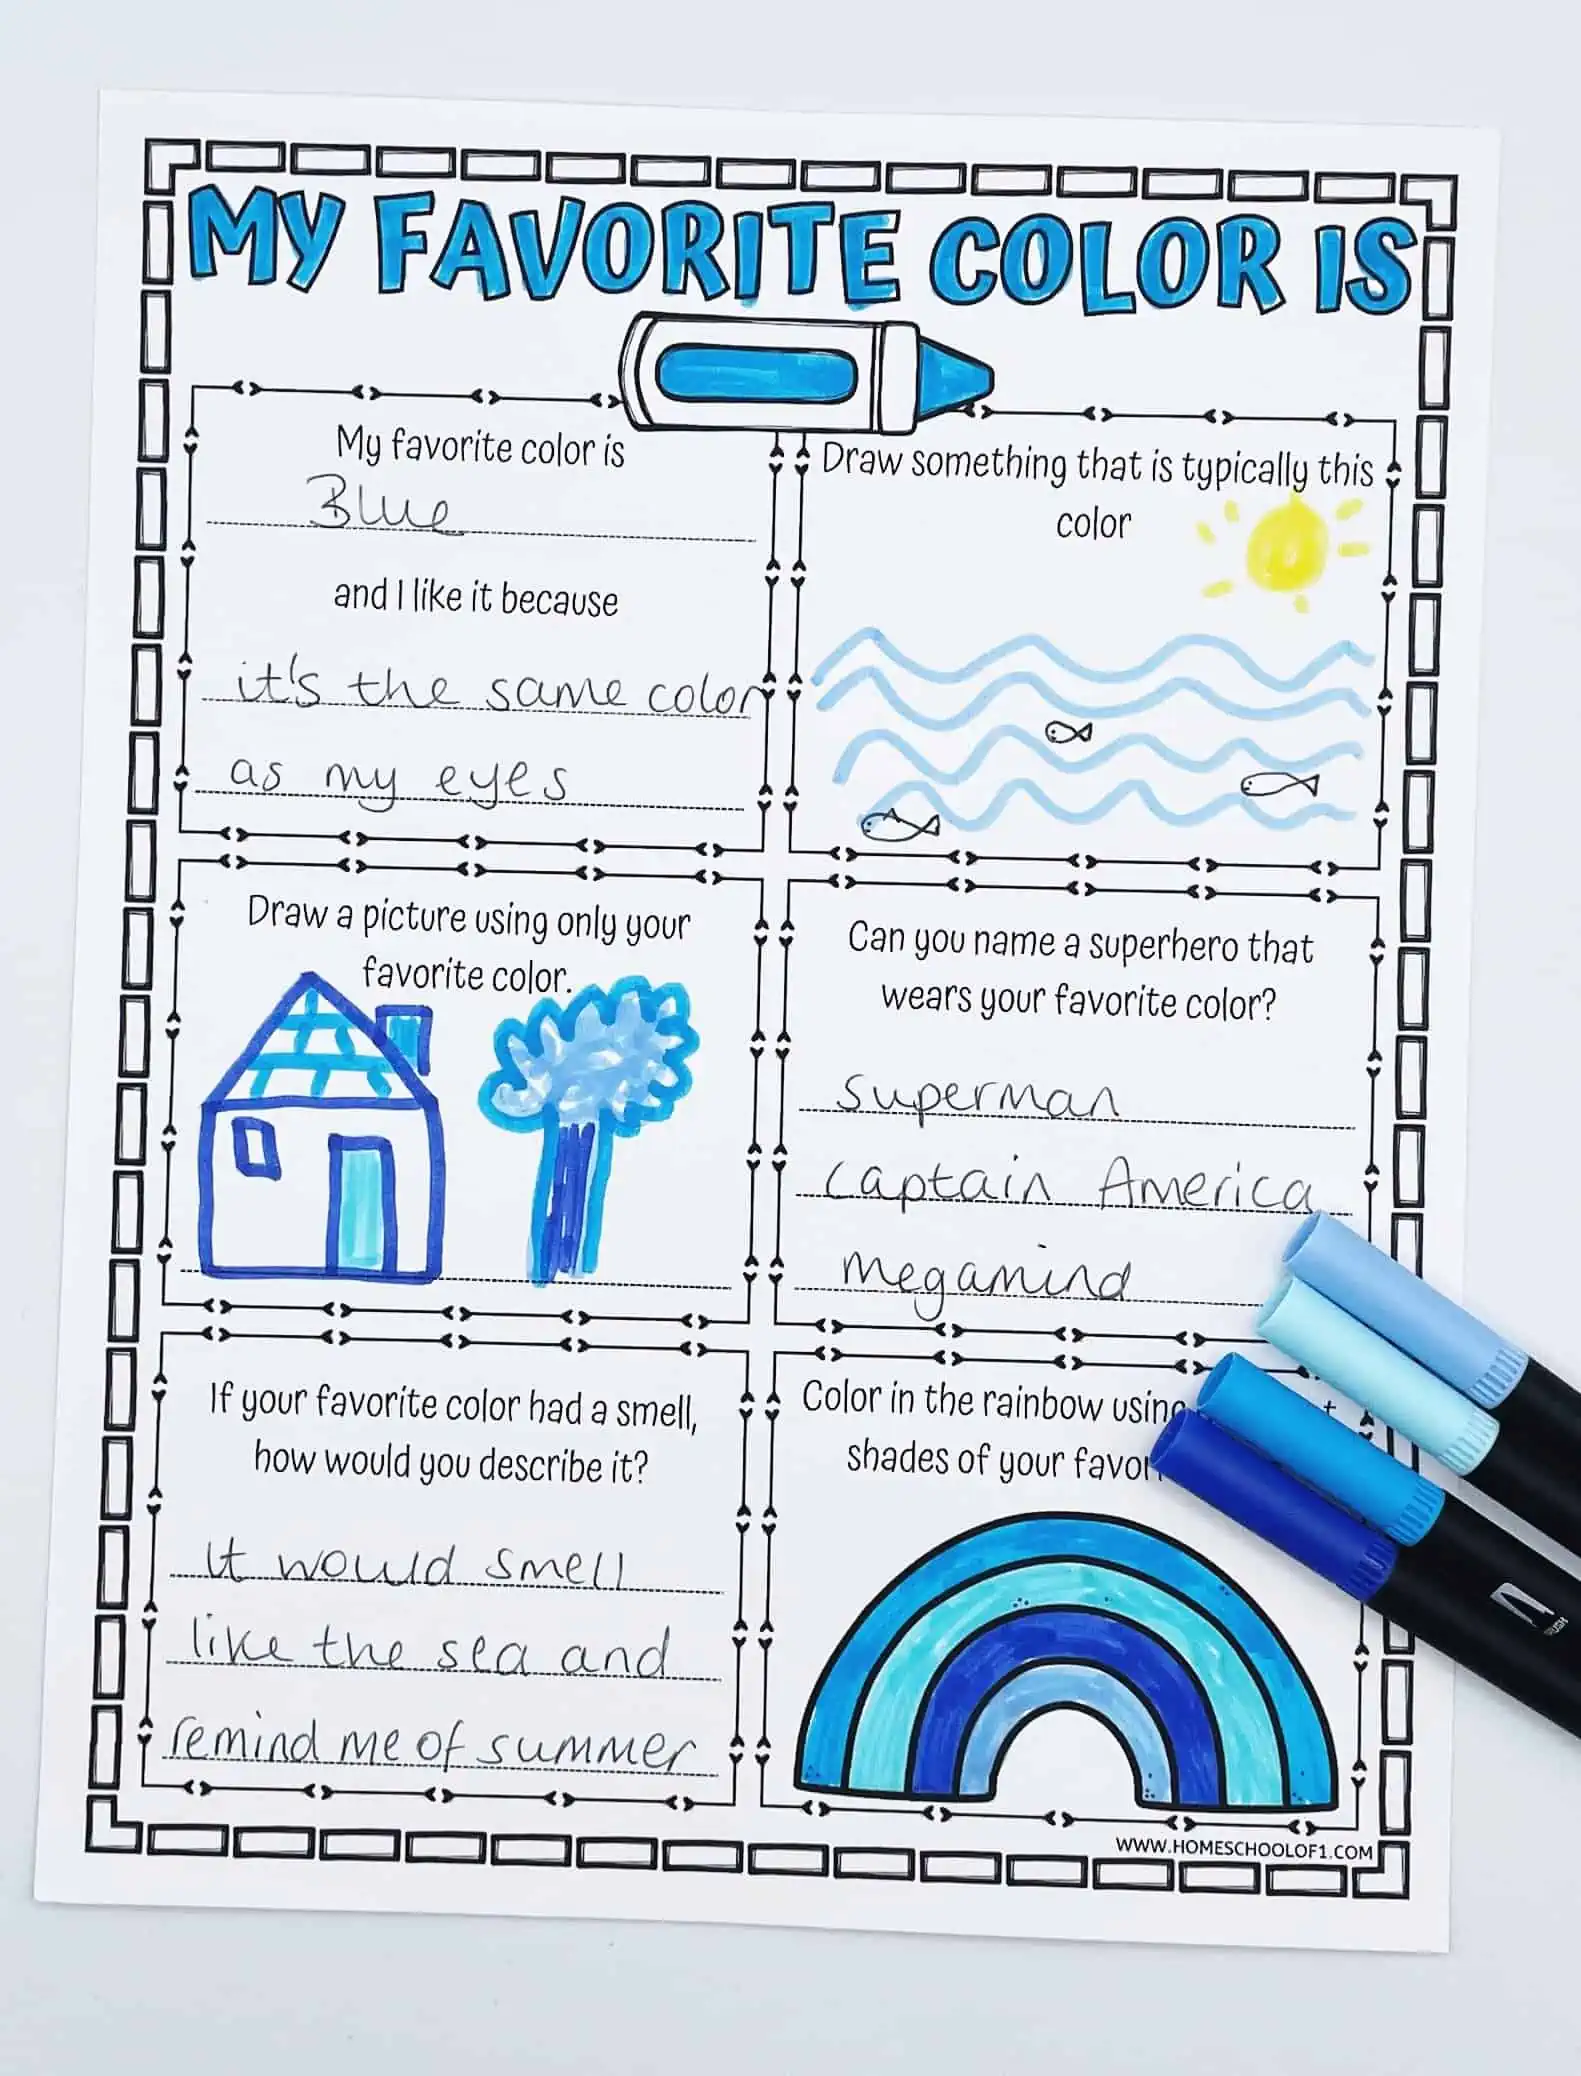 MY FAVORITE COLOR IS
My favorite color is
Blue
and I like it because
it's the same color
as my eyes
Draw something that is typically this
color
Draw a picture using only your
favorite color.
Can you name a superhero that
wears your favorite color?
superman
captain America
megamind
If your favorite color had a smell,
how would you describe it?
it would smell
like the sea and
remind me of summer
Color in the rainbow using
shades of your
WWW.HOMESCHOOLOF1.COM